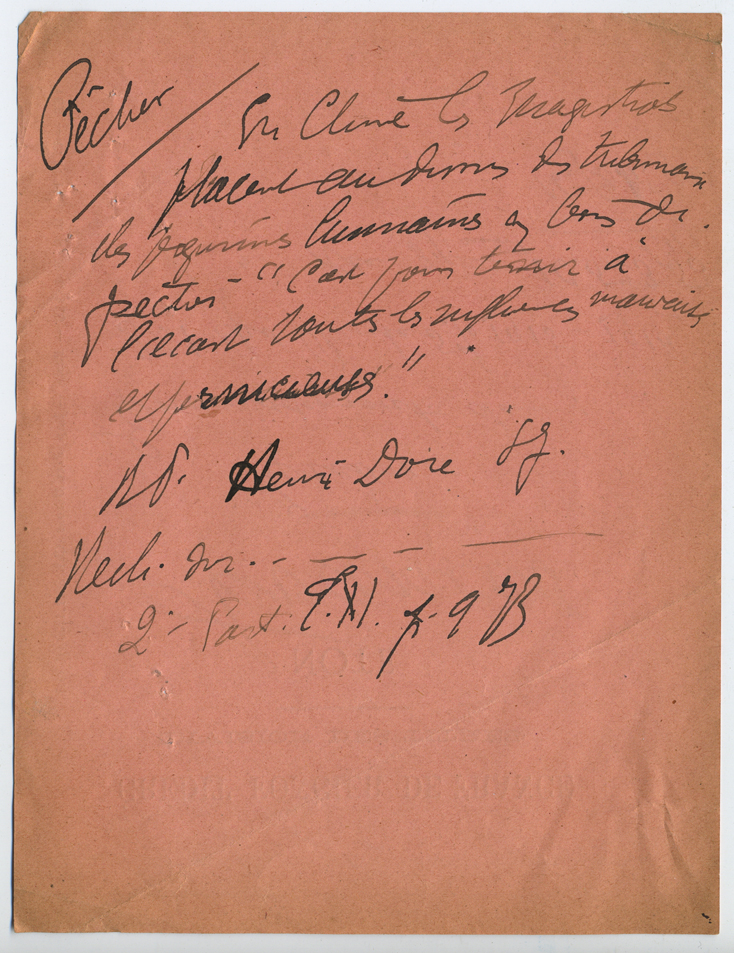 Pêcher
En Chine les Magistrats
placent au dessus des tribunaux
des figurines humaines en bois de
pêcher - "C'est pour tenir à
l'écart toutes les influences mauvaises
et pernicieuses."
R.P. Henri Doré S.J.
Rech. sur. - — - —
2e Part. T. XI. p. 973